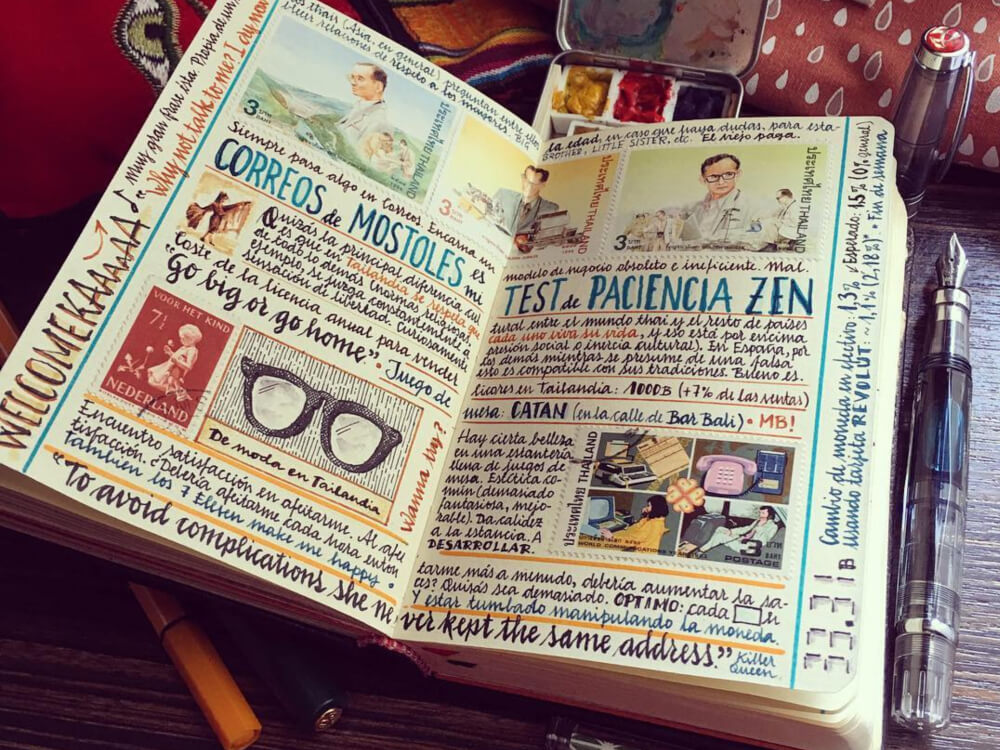 WELCOMEKAAAAAA♪
"Muy gran frase ésta. Propia de un
Why not talk to me? I cry now
thais (Asia, en general) preguntan entre ellos
blecer relaciones de respeto a los mayores. BIG
3 BAHT
ประเทศไทย THAILAND
3
Siempre pasa algo en Correos. Encarna un
CORREOS de MOSTOLES
Quizás la principal diferencia cul
es que en Tailandia se respeta que
todo lo demás (normas religiosas,
ejemplo, se juzga constantemente a
sensación de libertad. Curiosamente
es mi
Coste de la licencia anual para vender
"Go big or go home" • Juego de
VOOR HET KIND
7½
NEDERLAND
De moda en Tailandia
Wanna try?
Encuentro satisfacción en afeitarme. Al afei
tisfacción. ¿Debería afeitarme cada hora enton
También los 7 Eleven make me happy.
"To avoid complications she ne
la edad, en caso que haya dudas, para esta-
BROTHER, LITTLE SISTER, etc. El viejo paga.
ประเทศไทย THAILAND
3 BAHT
ประเทศไทย THAILAND
modelo de negocio obsoleto e ineficiente. Mal.
TEST de PACIENCIA ZEN
tural entre el mundo thai y el resto de países
cada uno viva su vida, y eso está por encima
presión social o inercia cultural). En España, por
los demás mientras se presume de una falsa
esto es compatible con sus tradiciones. Bueno es.
licores en Tailandia: 1000B (+7% de las ventas)
mesa: CATAN (en la calle de Bar Bali) • MB!
Hay cierta belleza
en una estantería
llena de juegos de
mesa. Estética co-
mún (demasiado
fantasiosa, mejo-
rable). Da calidez
a la estancia. A
DESARROLLAR.
ประเทศไทย THAILAND
WORLD COMMUNICATIONS YEAR
3 BAHT
POSTAGE
tarme más a menudo, debería aumentar la sa-
ces? Quizás sea demasiado. ÓPTIMO: cada
Y estar tumbado manipulando la moneda.
ver kept the same address."
Killer
Queen
33.31B
Cambio de moneda en efectivo: 1,3% ¿Esperado: 15% (0% genial)
usando tarjeta REVOLUT: ~1,1% (2,18%)* • Fin de semana